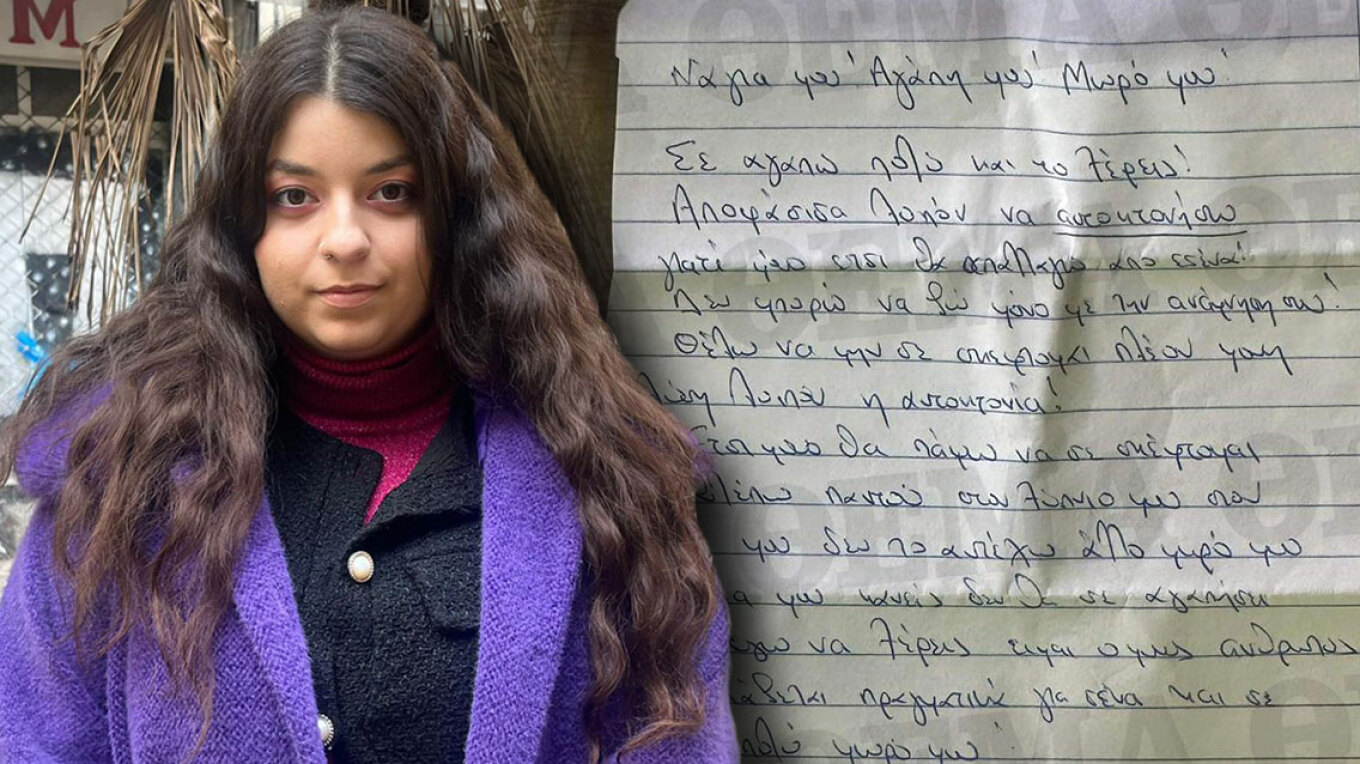 M
Νάγια μου! Αγάπη μου! Μωρό μου!
Σε αγαπώ πολύ και το ξέρεις!
Αποφάσισα λοιπόν να αυτοκτονήσω
γιατί μόνο έτσι θα απαλλαγώ από εσένα!
Δεν μπορώ να ζω μόνο με την ανάμνηση σου!
Θέλω να μην σε σκέφτομαι πλέον μονη
λύση λοιπόν η αυτοκτονία!
Έτσι μονο θα πάψω να σε σκέφτομαι
βλέπω παντού στο ξύπνιο μου στον
μου δεν το αντέχω άλλο μωρό μου
μου κανείς δεν θα σε αγαπήσει
να ξέρεις ειμαι ο μονος ανθρωπος
πραγματικά για σένα και σε
πολύ μωρό μου!
ΘΕΜΑ